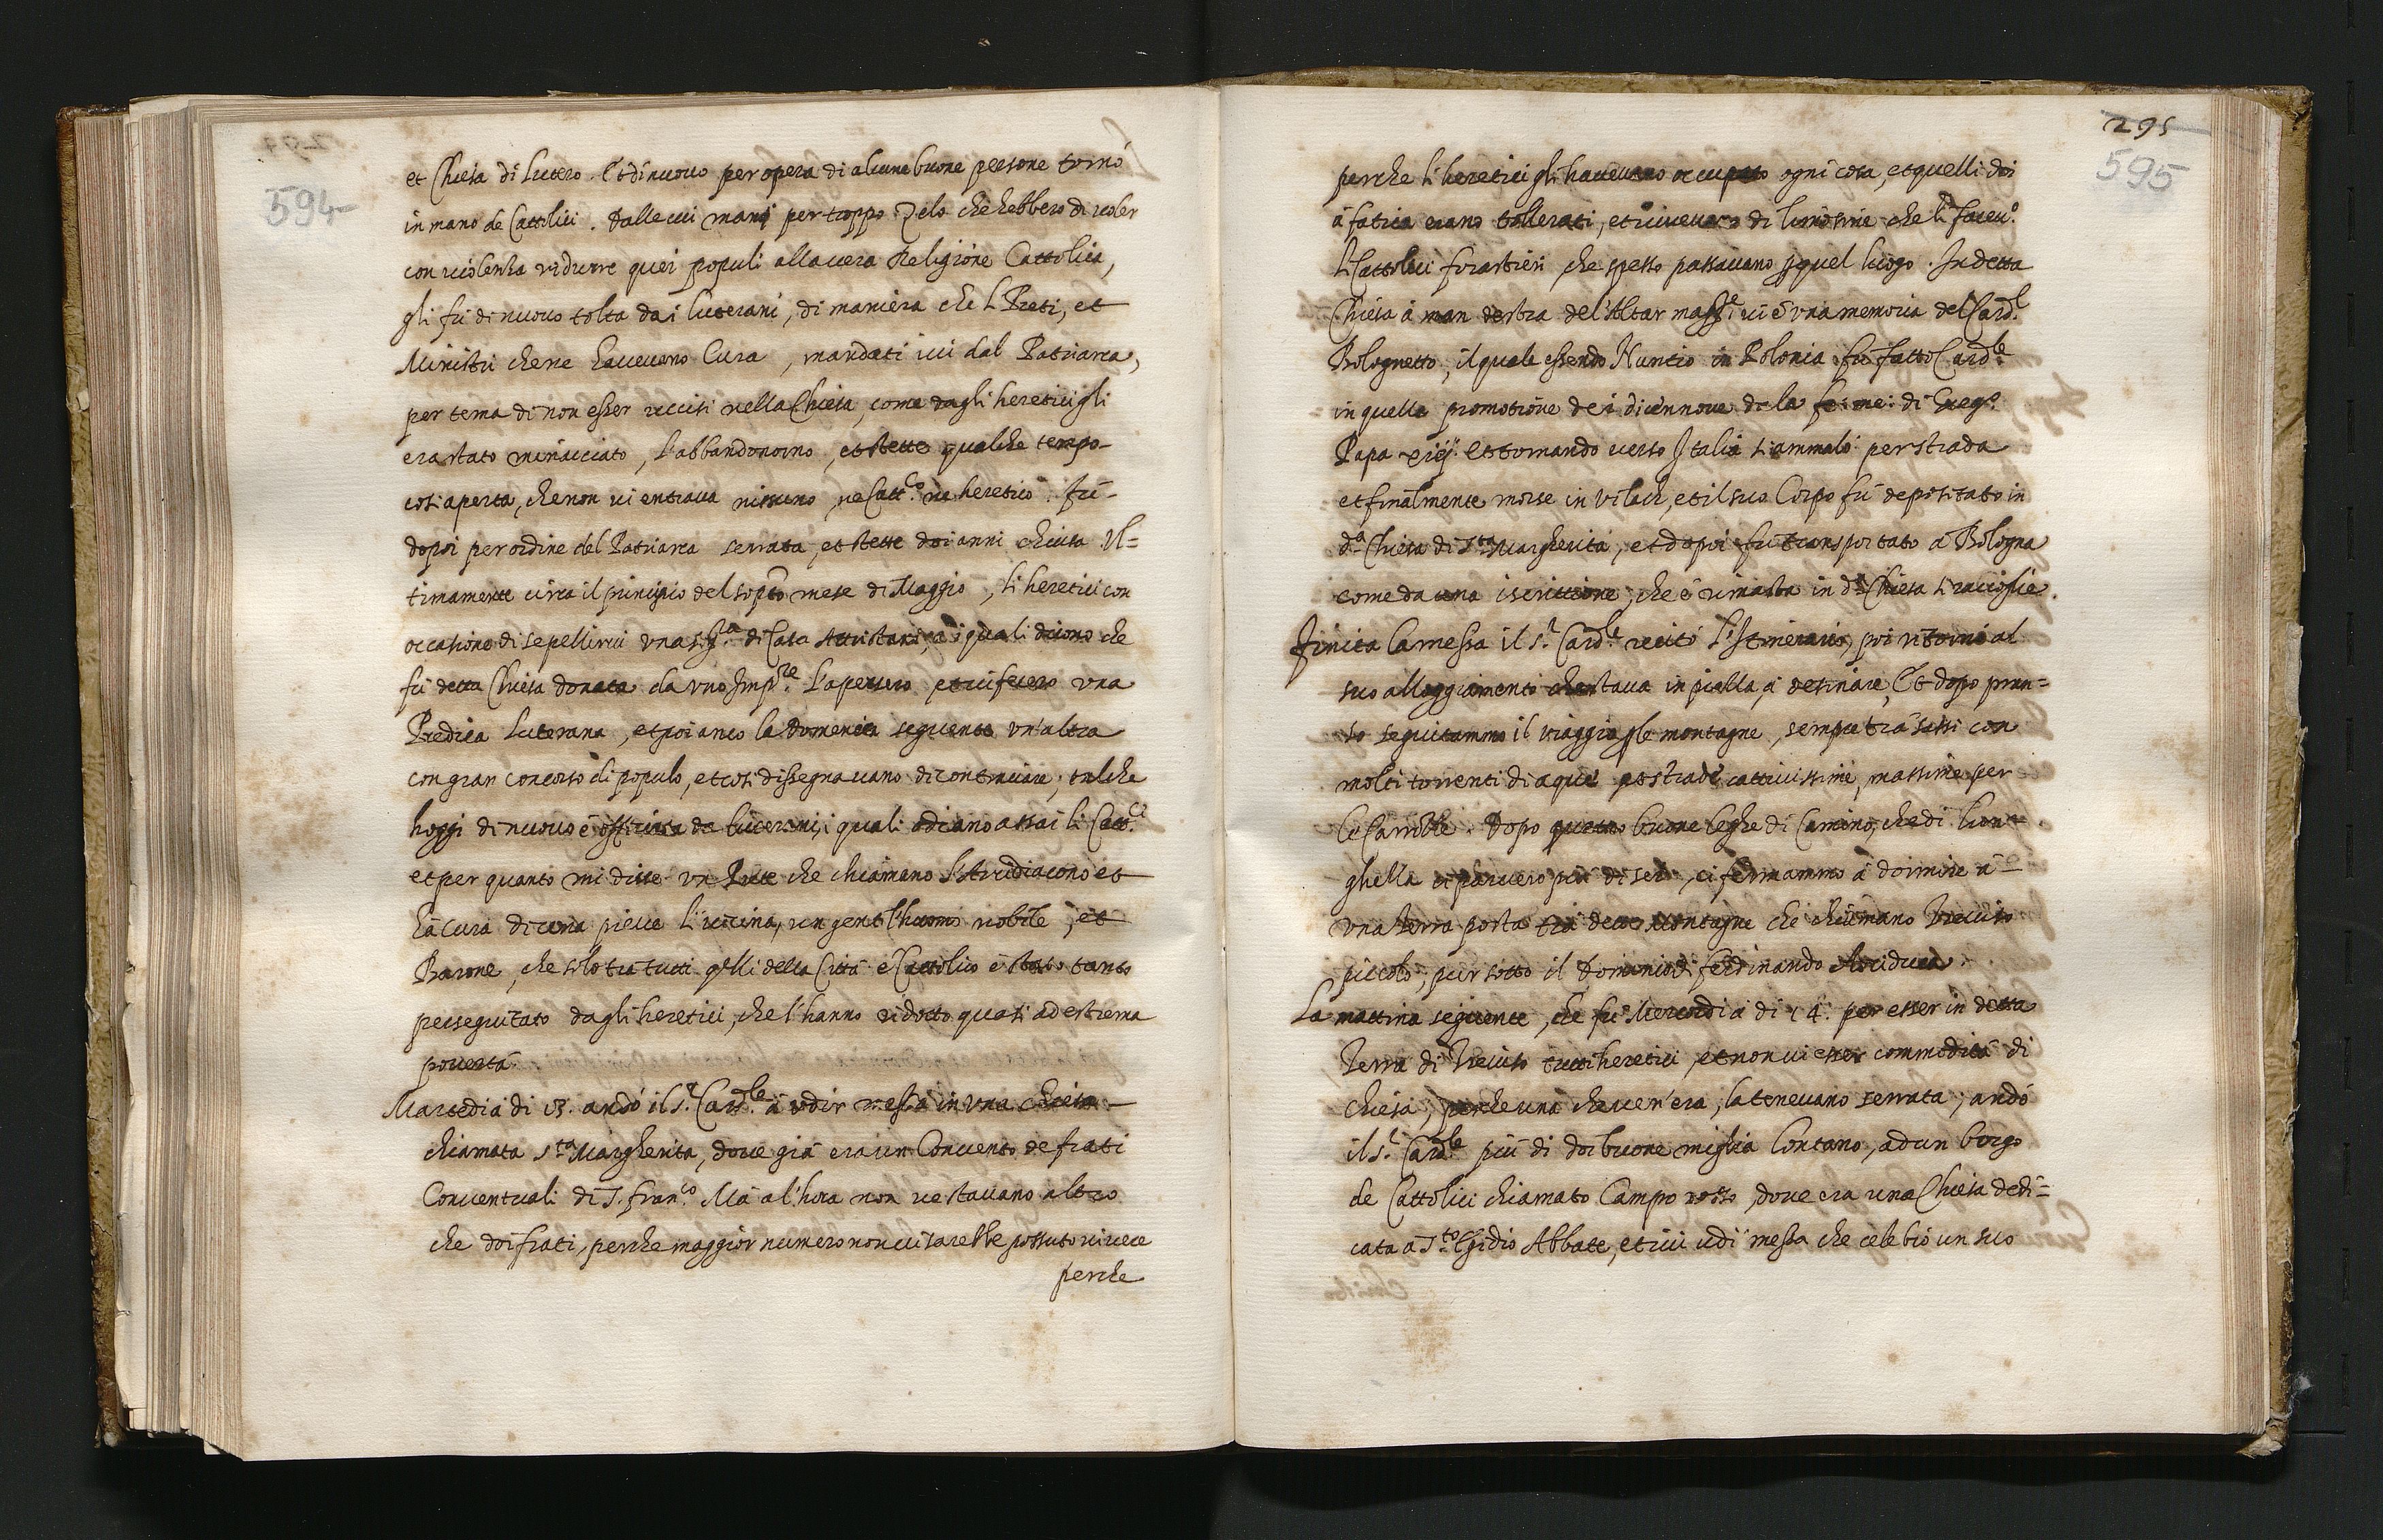 594
et Chiesa di Lutero. Et di nuovo per opera di alcune buone persone tornò
in mano de Cattolici. Dalle cui mani per troppo zelo che hebbero di voler
con violenza ridurre quei populi alla vera Religione Cattolica,
gli fù di nuovo tolta dai luterani, di maniera che li Preti, et
Ministri che ne havevano Cura, mandati ivi dal Patriarca,
per tema di non esser uccisi nella Chiesa, come dagli heretici gli
era stato minacciato, l'abbandonorno, et stette qualche tempo
così aperta, che non vi entrava nissuno, ne Catt.co ne heretico. fù
dopoi per ordine del Patriarca serrata, et stette doi anni chiusa Ul=
timamente circa il principio del sop.to mese di Maggio, li heretici con
occasione di sepellirvi una Sig.ra di Casa ai quali dicono che
fù detta Chiesa donata da uno Imp.re l'apersero et vi fecero una
Predica luterana, et poi anco la Domenica seguente un'altra
con gran concorso di populo, et così dissegnavano di continuare, talche
hoggi di nuovo è da luterani, i quali odiano assai li Catt.ci
et per quanto mi disse un Prete che chiamano l'Arcidiacono et
hà cura di una pieve lì vicina, un gentil'huomo nobile, et
Barone, che solo trà tutti q̃lli della Città è Cattolico è stato tanto
perseguitato dagli heretici, che l'hanno ridotto quasi ad estrema
povertà.
Martedi à di 13. andò il S.r Card.le à udir messa in una chiesa
chiamata S.ta Margherita, dove già era un Convento de frati
Conventuali di S. fran.co Mà al'hora non ve stavano altro
che doi frati, perche maggior numero non vi sarebbe possuto vivere
perche
295
595
perche li heretici gli havevano occupato ogni cosa, et quelli doi
à fatica erano tollerati, et vivevano di limosine che li facev.o
li Cattolici forastieri che spesso passavano p quel luogo. In detta
Chiesa à man destra del'Altar magg.re vi è una memoria del Card.l
Bolognetto, il quale essendo Nuntio in Polonia fù fatto Card.le
in quella promotione dei dicinnove de la fe: me: di Greg.o
Papa xiij. et tornando verso Italia s'ammalò per strada
et finalmente morse in Vilach, et il suo Corpo fù depositato in
d.a Chiesa di S.ta Margherita, et dopoi fù transportato à Bologna
come da una iscrittione, che è rimasta in d.a Chiesa si raccoglie.
Finita la messa il S.r Card.le recitò l'Itinerario, poi ritornò al
suo alloggiamento che stava in piazza, à desinare, Et dopo pran=
so seguitammo il viaggio p le montagne, sempre trà sassi con
molti torrenti di aque per strade cattivissime, massime per
le Carrozze. Dopo quattro buone leghe di Camino, che di lun=
ghezza ci parvero più di sei, ci fermammo à dormire à
una terra posta trà dette Montagne che chiamano Treviso
piccolo, pur sotto il Dominio di ferdinando Arciduca.
La mattina seguente, che fu Mercordi à di 14. per esser in detta
Terra di Treviso tutti heretici, et non vi esser commodità di
chiesa, perche una che ve n'era, la tenevano serrata, andò
il S.r Card.le più di doi buone miglia lontano, ad un borgo
de Cattolici chiamato Campo rosso, dove era una Chiesa dedi=
cata a S.to Egidio Abbate, et ivi udì messa che celebrò un suo